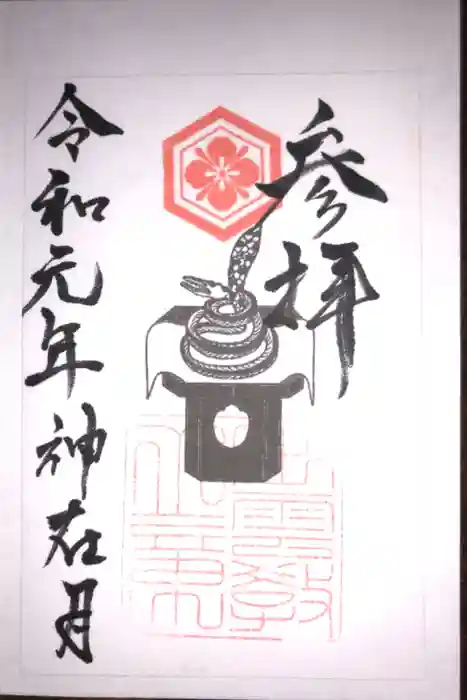 参拝
令和元年神在月